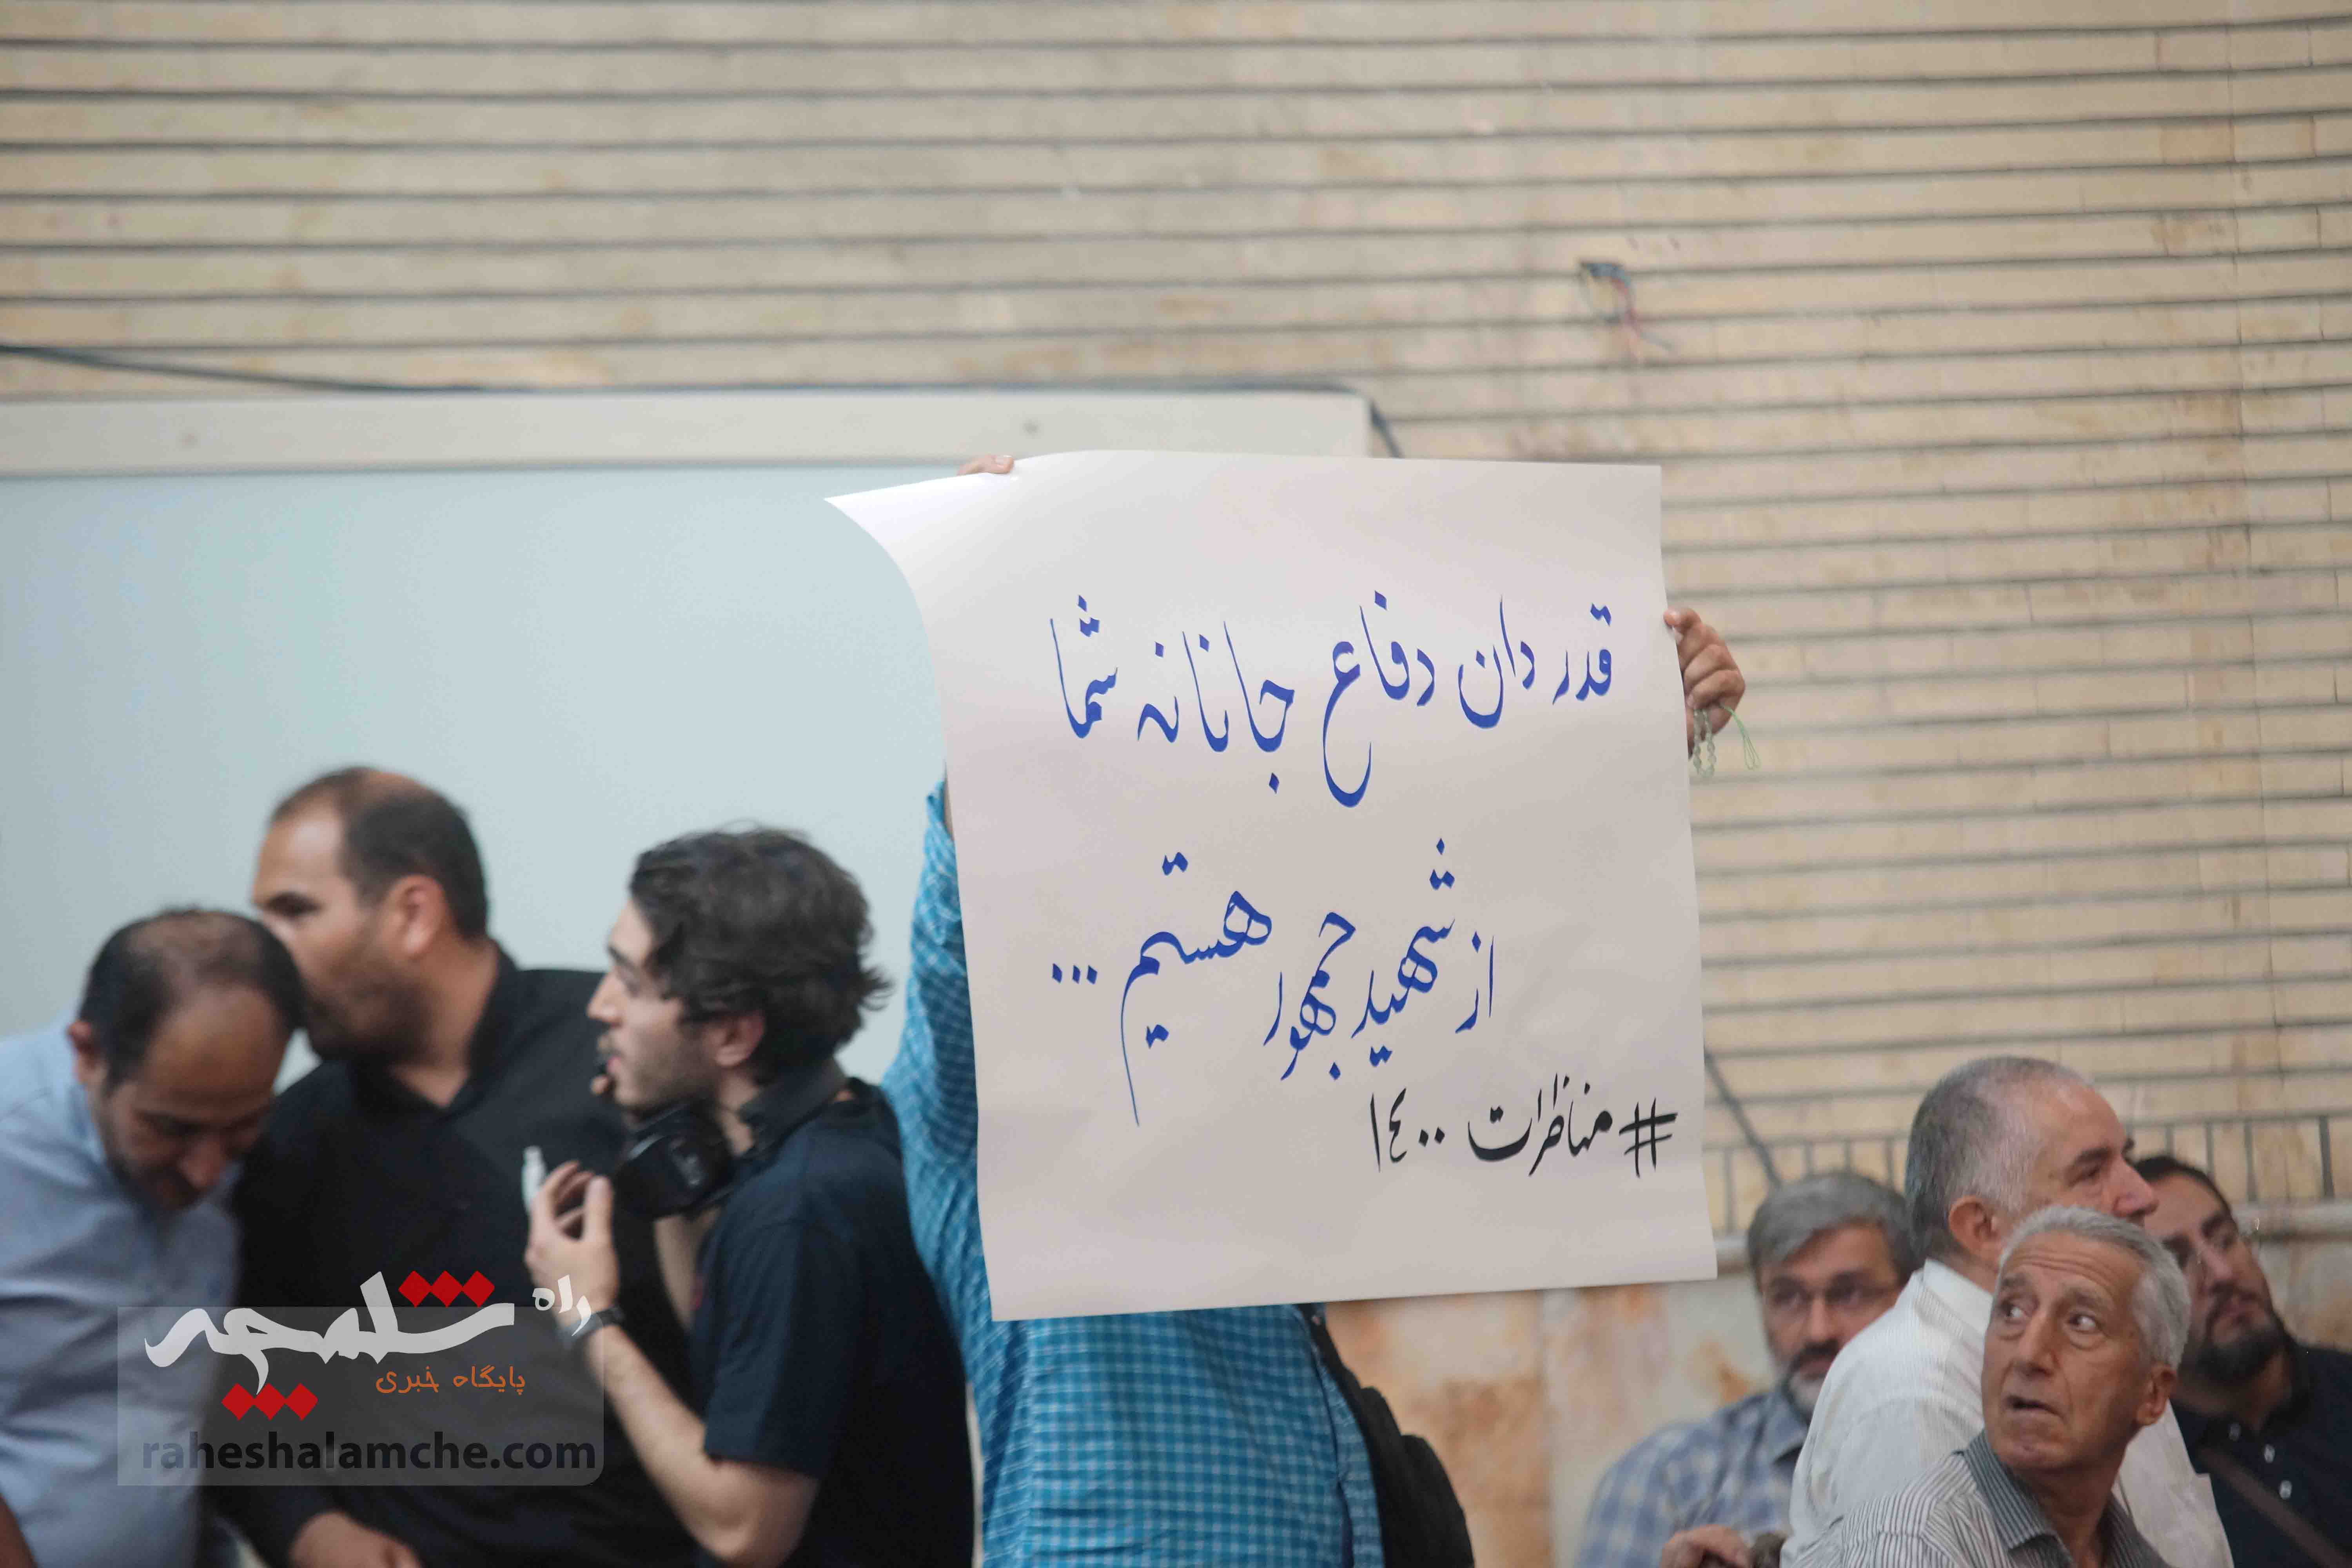 قدر دان دفاع جانانه شما
از شهید جمهور هستیم ...
#مناظرات ۱٤۰۰
راه شلمچه
پایگاه خبری
raheshalamche.com